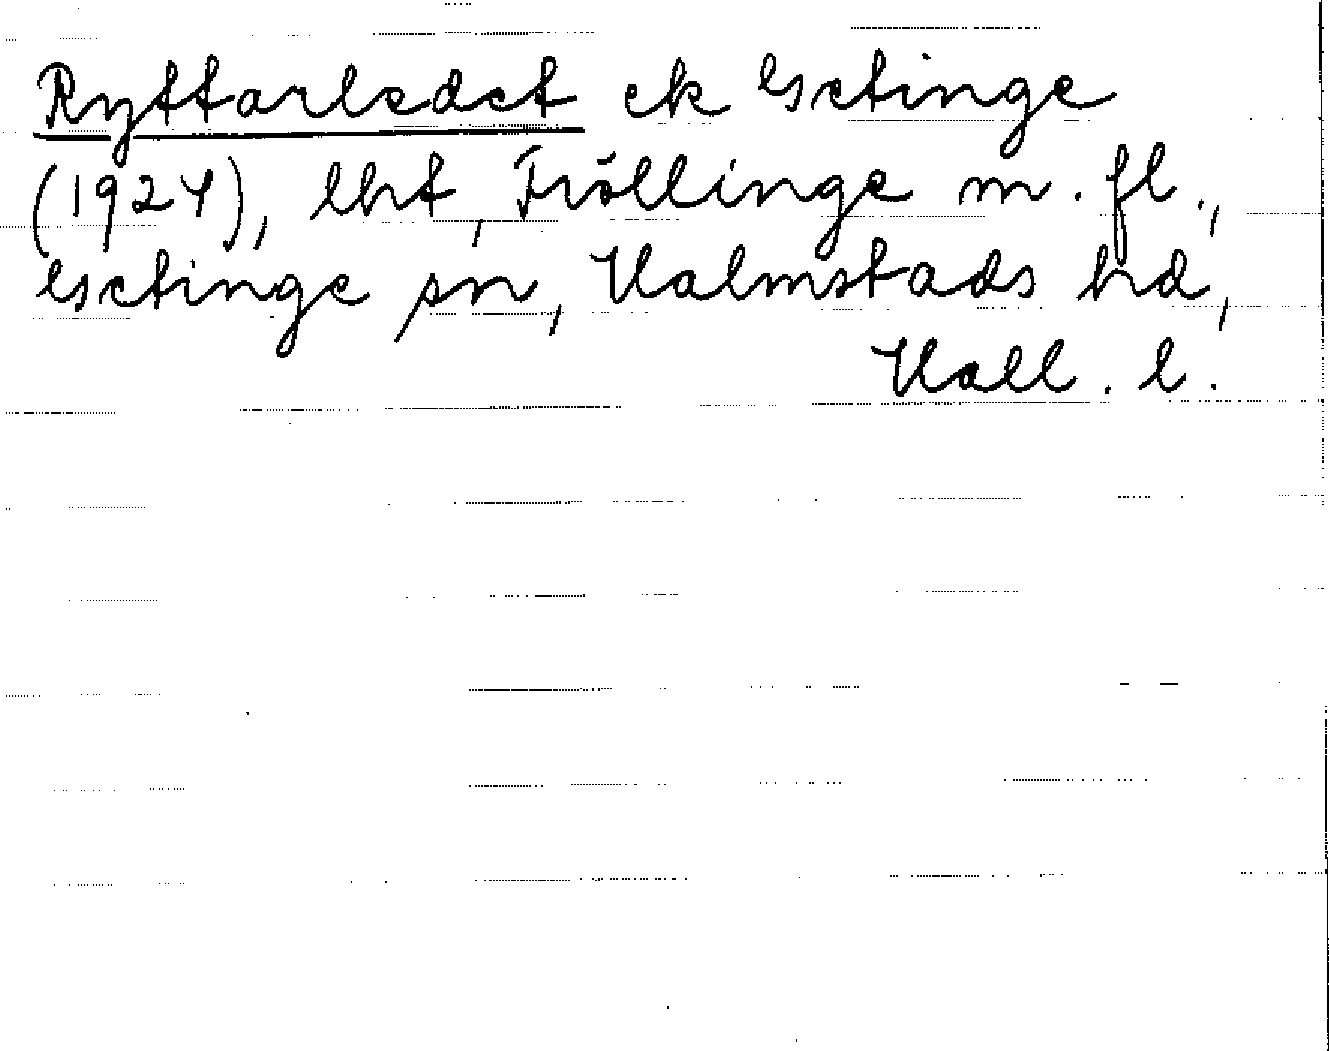 Ryttarledet ek Getinge
(1924), lht, Fröllinge m. fl.,
Getinge sn, Halmstads hd,
Hall. l.